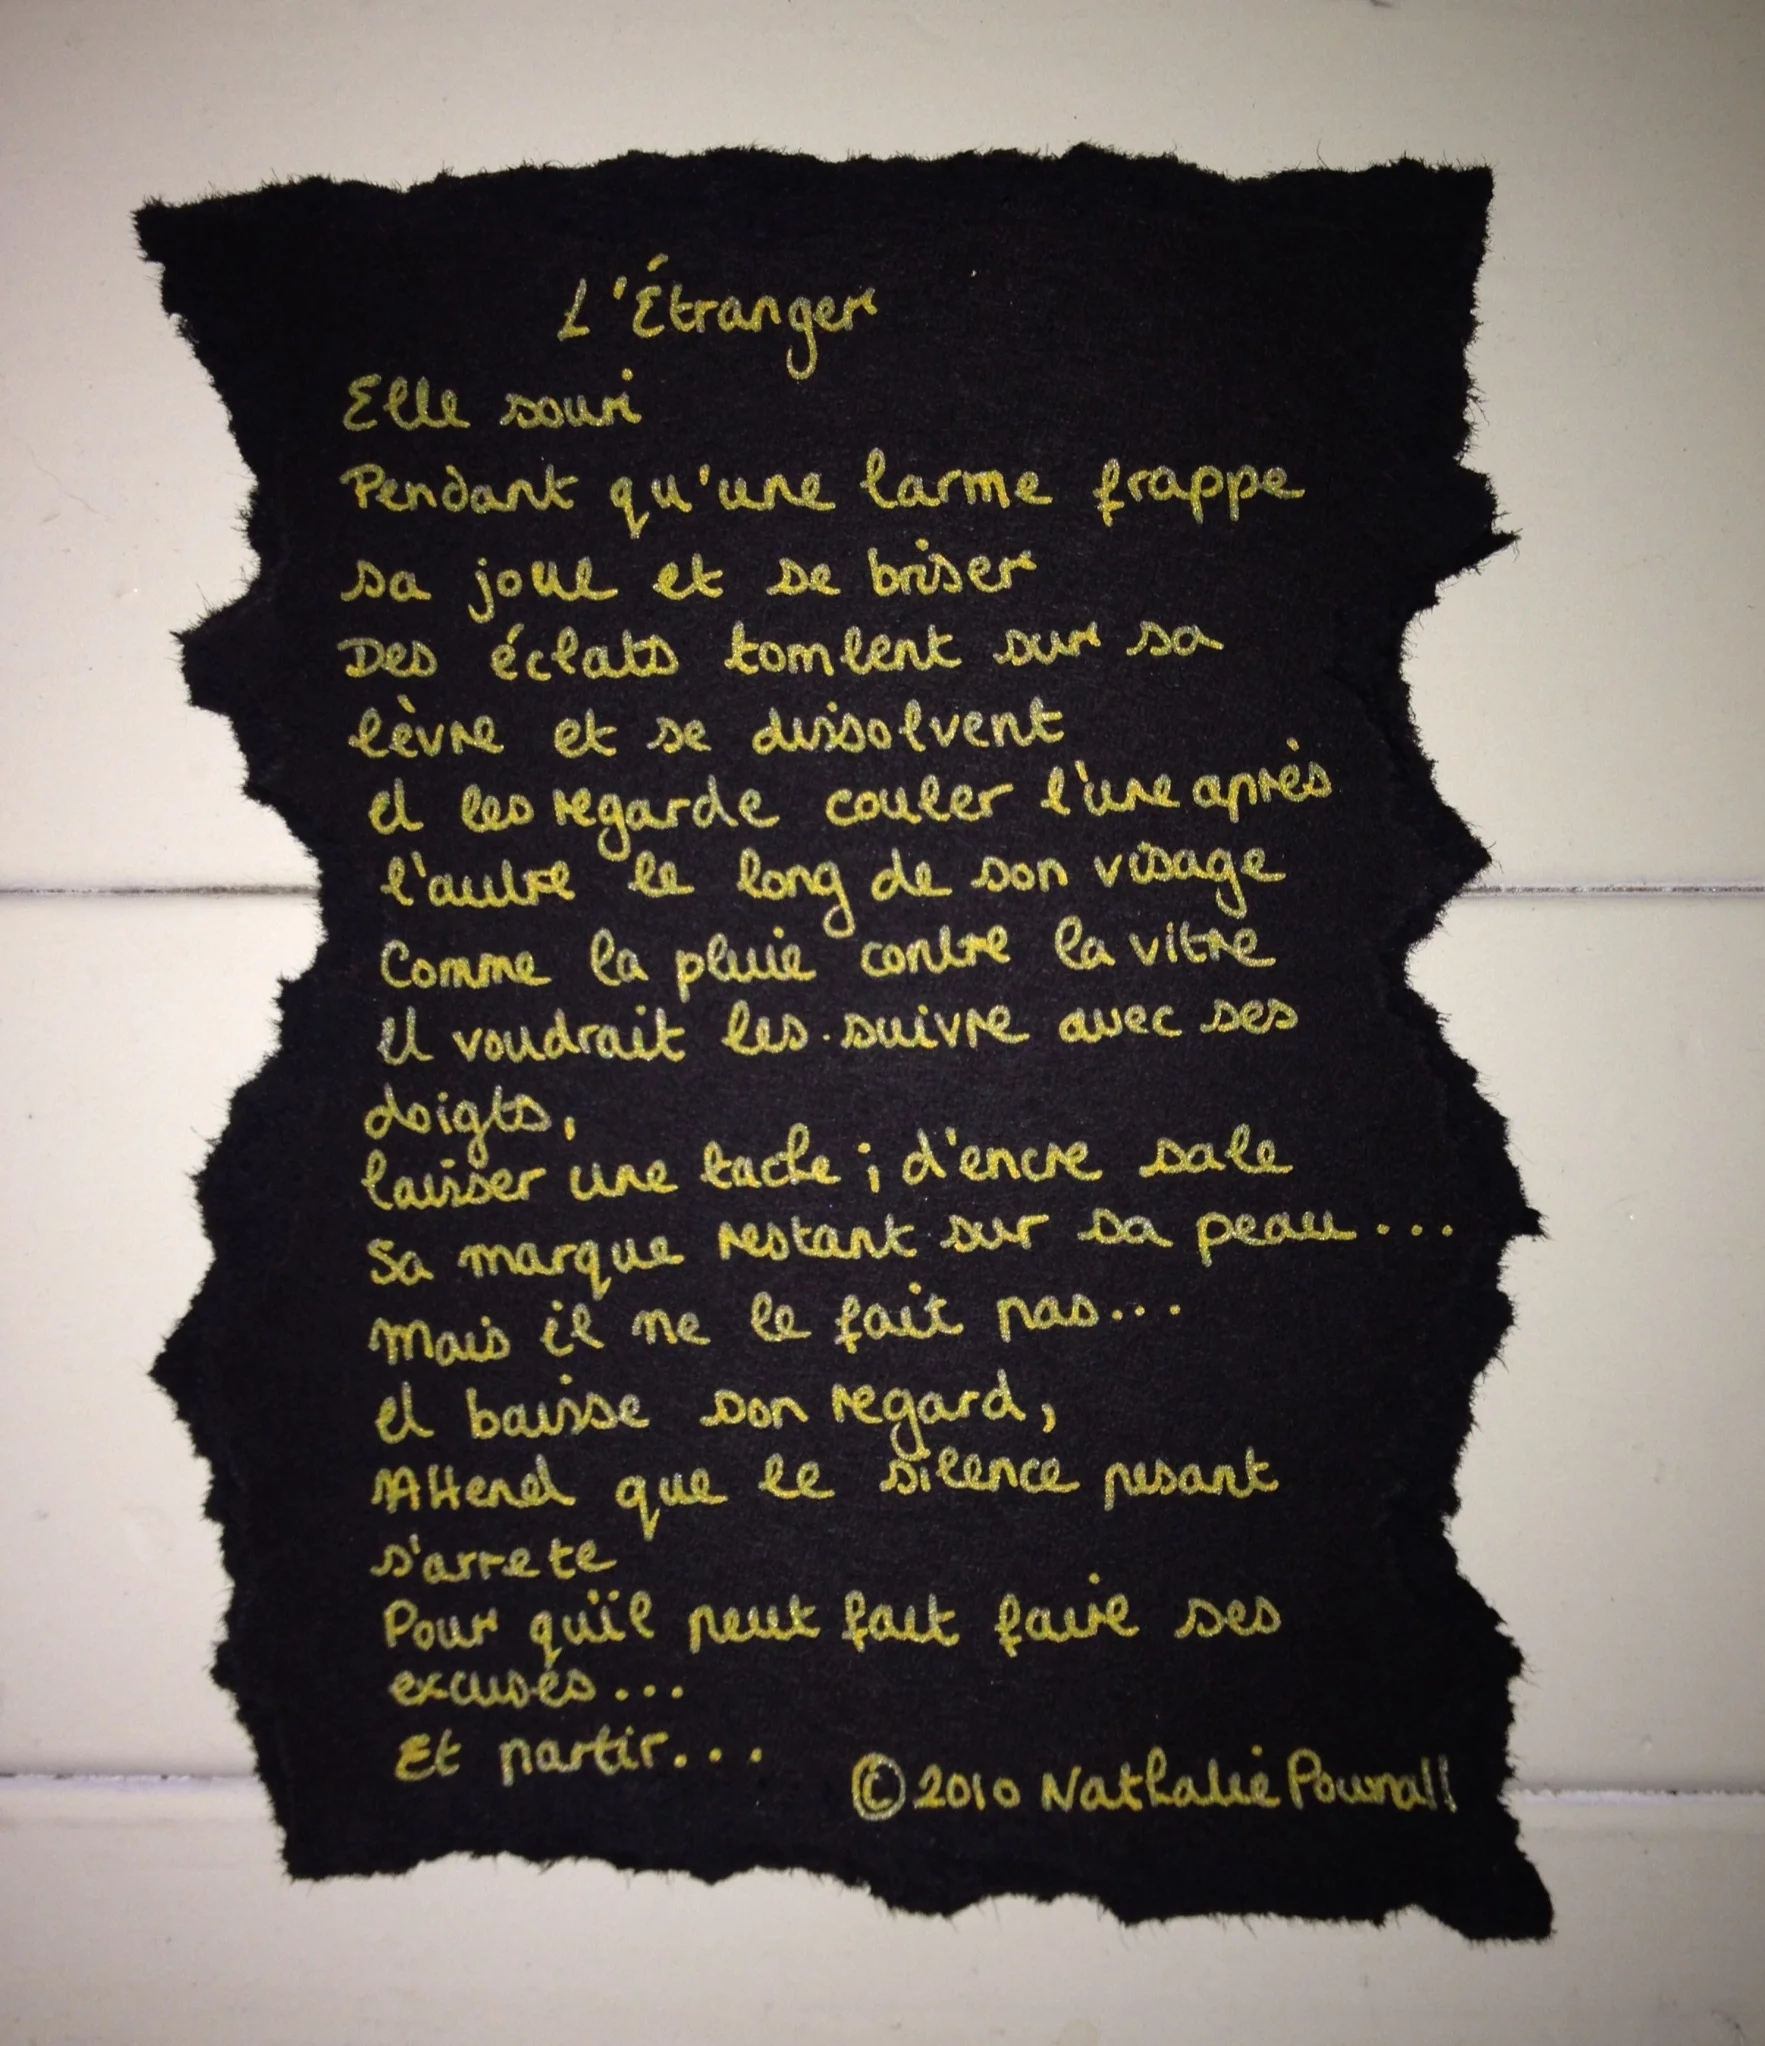 L'Étranger
Elle souri
Pendant qu'une larme frappe
sa joue et se briser
Des éclats tombent sur sa
lèvre et se dissolvent
Il les regarde couler l'une après
l'autre le long de son visage
Comme la pluie contre la vitre
Il voudrait les suivre avec ses
doigts,
laisser une tache ; d'encre sale
Sa marque restant sur sa peau...
Mais il ne le fait pas...
Il baisse son regard,
Attend que le silence pesant
s'arrete
Pour qu'il peut fait faire ses
excusés...
Et partir...
©2010 Nathalie Pownall